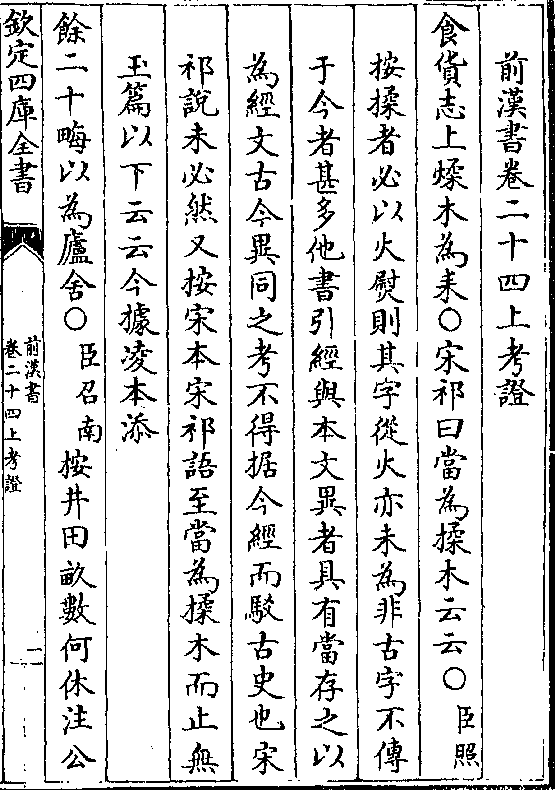 前漢書卷二十四上考證
食貨志上煣木為耒○宋祁曰當為揉木云云○臣照
按揉者必以火熨則其字從火亦未為非古字不傳
于今者甚多他書引經與本文異者具有當存之以
為經文古今異同之考不得据今經而駁古史也宋
祁說未必然又按宋本宋祁語至當為揉木而止無
玉篇以下云云今據凌本添
餘二十畮以為廬舍○臣召南按井田畝數何休注公
欽定四庫全書
前漢書
卷二十四上考證
二